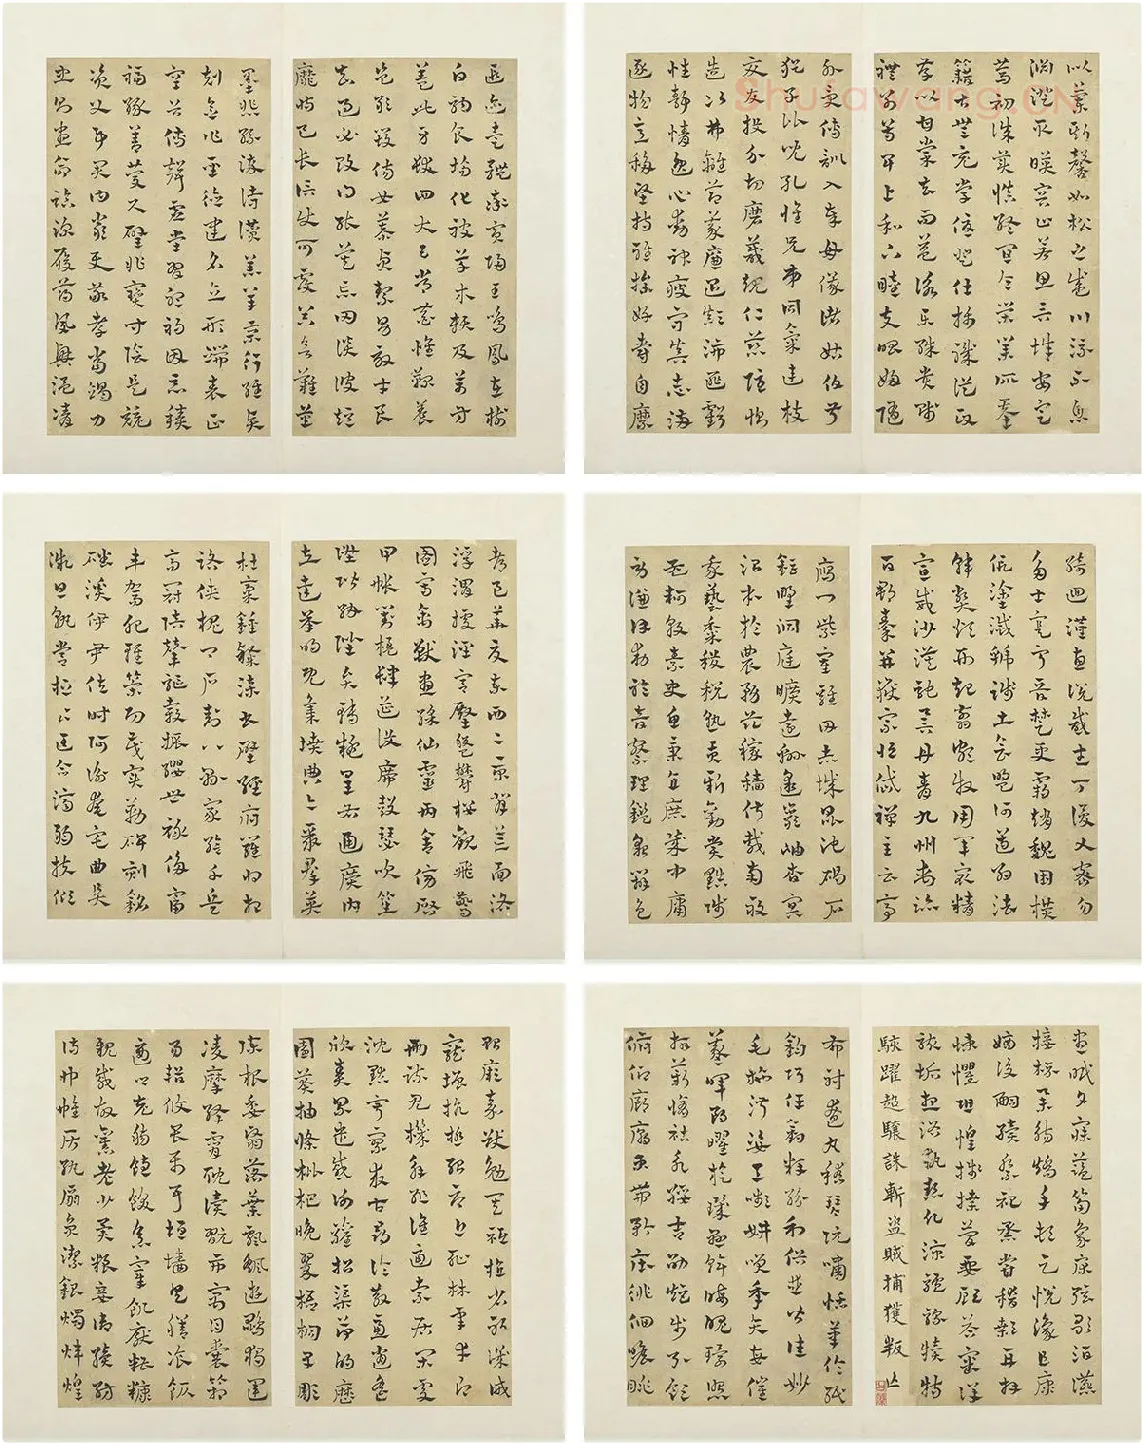 遐迩壹體率賓歸王鳴鳳在樹
白駒食場化被草木賴及萬方
蓋此身髮四大五常恭惟鞠養
豈敢毀傷女慕貞絜男效才良
知過必改得能莫忘罔談彼短
靡恃己長信使可覆器欲難量
墨悲絲染詩讚羔羊景行維賢
剋念作聖德建名立形端表正
空谷傳聲虛堂習聽禍因惡積
福緣善慶尺璧非寶寸陰是競
資父事君曰嚴與敬孝當竭力
忠則盡命臨深履薄夙興溫凊
Shufawang.CN
似蘭斯馨如松之盛川流不息
淵澄取暎容止若思言辭安定
篤初誠美慎終宜令榮業所基
籍甚無竟學優登仕攝職從政
存以甘棠去而益詠樂殊貴賤
禮別尊卑上和下睦夫唱婦隨
外受傅訓入奉母儀諸姑伯叔
猶子比兒孔懷兄弟同氣連枝
交友投分切磨箴規仁慈隱惻
造次弗離節義廉退顛沛匪虧
性靜情逸心動神疲守真志滿
逐物意移堅持雅操好爵自縻
都邑華夏東西二京背芒面洛
浮渭據涇宮殿盤鬱樓觀飛驚
圖寫禽獸畫綵仙靈丙舍傍啟
甲帳對楹肆筵設席鼓瑟吹笙
陞階納陛弁轉疑星右通廣內
左達承明既集墳典亦聚群英
杜稾鍾隸漆書壁經府羅將相
路俠槐卿戶封八縣家給千兵
高冠陪輦驅轂振纓世祿侈富
車駕肥輕策功茂實勒碑刻銘
磻溪伊尹佐時阿衡奄宅曲阜
微旦孰營桓公匡合濟弱扶傾
綺迴漢惠說感武丁俊乂密勿
多士寔寧晉楚更霸趙魏困橫
假途滅虢踐土會盟何遵約法
韓弊煩刑起翦頗牧用軍最精
宣威沙漠馳譽丹青九州禹跡
百郡秦并嶽宗恒岱禪主云亭
雁門紫塞雞田赤城昆池碣石
鉅野洞庭曠遠綿邈巖岫杳冥
治本於農務茲稼穡俶載南畝
我藝黍稷稅熟貢新勸賞黜陟
孟軻敦素史魚秉直庶幾中庸
勞謙謹敕聆音察理鑑貌辨色
貽厥嘉猷勉其祗植省躬譏誡
寵增抗極殆辱近恥林皋幸即
兩疏見機解組誰逼索居閑處
沈默寂寥求古尋論散慮逍遙
欣奏累遣慼謝歡招渠荷的歷
園莽抽條枇杷晚翠梧桐早彫
陳根委翳落葉飄颻遊鵾獨運
凌摩絳霄耽讀翫市寓目囊箱
易輶攸畏屬耳垣牆具膳飡飯
適口充腸飽飫烹宰飢厭糟糠
親戚故舊老少異糧妾御績紡
侍巾帷房紈扇圓潔銀燭煒煌
晝眠夕寐藍筍象床絃歌酒讌
接杯舉觴矯手頓足悅豫且康
嫡後嗣續祭祀蒸嘗稽顙再拜
悚懼恐惶牋牒簡要顧答審詳
骸垢想浴執熱願涼驢騾犢特
駭躍超驤誅斬盜賊捕獲叛亡
布射遼丸嵇琴阮嘯恬筆倫紙
鈞巧任釣釋紛利俗並皆佳妙
毛施淑姿工嚬妍笑年矢每催
曦暉朗曜琁璣懸斡晦魄環照
指薪修祜永綏吉劭矩步引領
俯仰廊廟束帶矜莊徘徊瞻眺